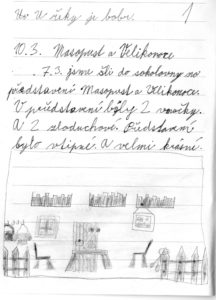 U ř U řeky je bobr. 1
10.3. Masopust a Velikonoce
7.3. jsme šli do sokolovny na
představení Masopust a Velikonoce.
V představení byly 2
A 2 zloduchové. Představení
bylo vtipné. A velmi krásné.